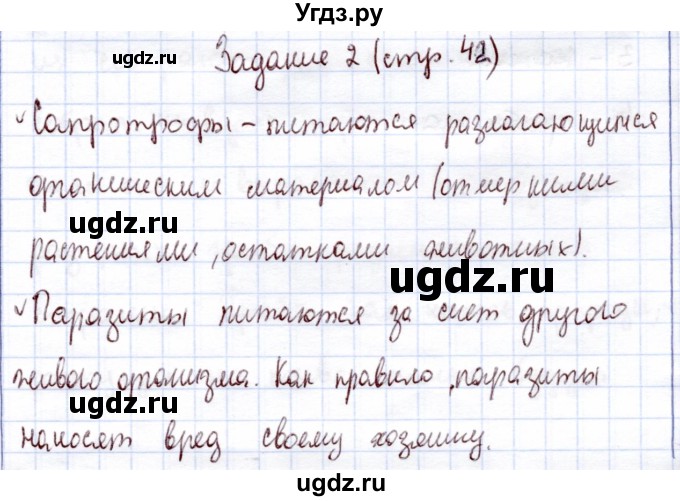 Угдз.ру
Задание 2 (стр. 42)
Сапротрофы – питаются разлагающимся
органическим материалом (отмершими
растениями, остатками животных).
Паразиты питаются за счет другого
живого организма. Как правило, паразиты
наносят вред своему хозяину.
ugdz.ru
ugdz.ru
ugdz.ru
ugdz.ru
ugdz.ru
ugdz.ru
ugdz.ru
ugdz.ru
Угдз.ру